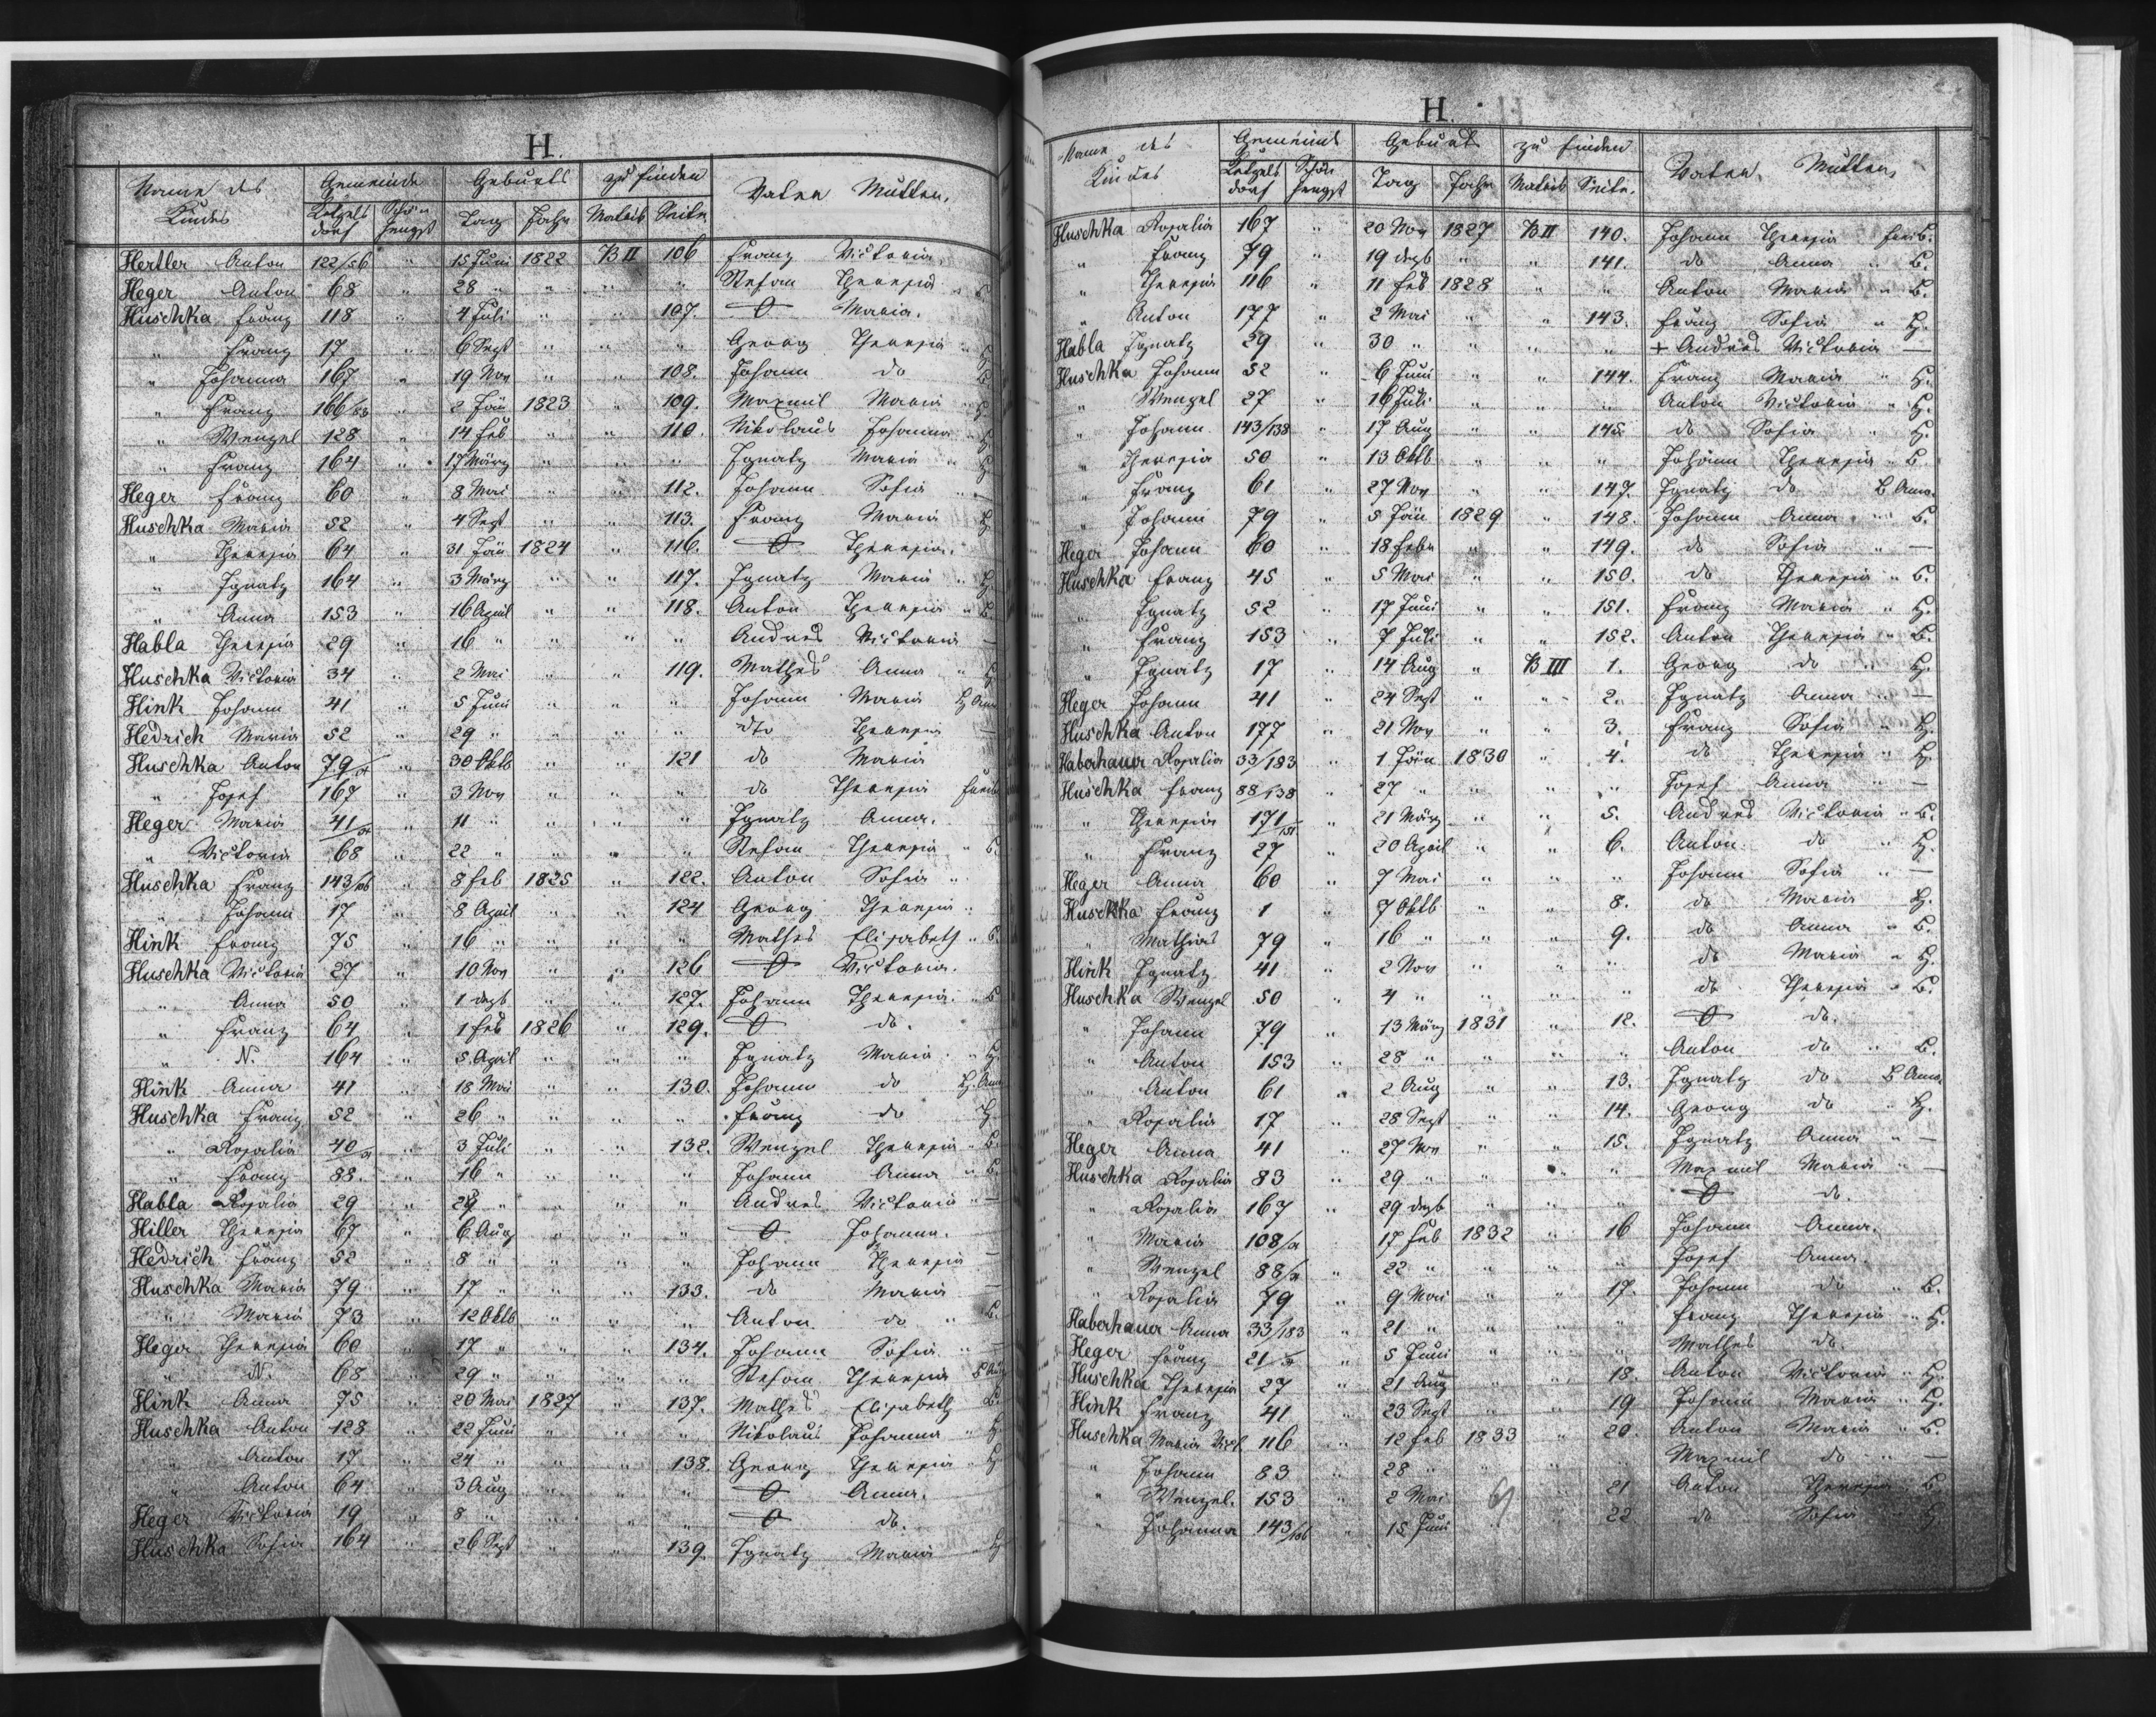 H.
Name des Kindes Gemeinde Geburts zu finden Vater Mutter,
Kötzels dorf Schön hengst Tag Jahr Matrik Seite
Hertler Anton 122/56 " 15 Juni 1822 B II 106 Franz Victoria
Heger Anton 68 " 28 " " " " Stefan Theresia " B.
Huschka Franz 118 " 4 Juli " " 107. O Maria.
" Franz 17 " 6 Sept " " " Georg Theresia " H
" Johanna 167 " 19 Nov " " 108. Johann do B.
" Franz 166/83 " 2 Jän 1823 " 109. Maxmil Maria " H.
" Wenzel 128 " 14 Feb " " 110. Nikolaus Johanna " H
" Franz 164 " 17 März " " " Ignatz Maria " H
Heger Franz 60 " 8 Mai " " 112. Johann Sofia " —
Huschka Maria 52 " 4 Sept " " 113. Franz Maria H
" Theresia 64 " 31 Jän 1824 " 116. O Theresia.
" Ignatz 164 " 3 März " " 117. Ignatz Maria " H.
" Anna 153 " 16 April " " 118. Anton Theresia " B
Habla Theresia 29 " 16 " " " " Andres Victoria —
Huschka Victoria 34 " 2 Mai " " 119. Mathes Anna " H
Hink Johann 41 " 5 Juni " " " Johann Maria H Anna
Hedrich Maria 52 " 29 " " " " dto Theresia —
Huschka Anton 79/a " 30 Oktb " " 121 do Maria
" Josef 167 " 3 Nov " " " do Theresia
Heger Maria 41/a " 11 " " " " Ignatz Anna.
" Victoria 68 " 22 " " " " Stefan Theresia " B.
Huschka Franz 143/106 " 8 Feb 1825 " 122. Anton Sofia "
" Johann 17 " 8 April " " 124 Georg Theresia "
Hink Franz 75 " 16 " " " " Mathes Elisabeth " B.
Huschka Victoria 27 " 10 Nov " " 126 O Victoria.
" Anna 50 " 1 dezb " " 127. Johann Theresia " B
" Franz 64 " 1 Feb 1826 " 129. O do.
" N. 164 " 5 April " " " Ignatz Maria " H.
Hink Anna 41 " 18 Mai " " 130. Johann do H. Anna
Huschka Franz 52 " 26 " " " " Franz do H.
" Rosalia 40/a " 3 Juli " " 132. Wenzel Theresia " B.
" Franz 88. " 16 " " " " Johann Anna " B.
Habla Rosalia 29 " 28 " " " " Andres Victoria " —
Hiller Theresia 67 " 6 Aug " " " O Johanna.
Hedrich Franz 52 " 8 " " " " Johann Theresia —
Huschka Maria 79 " 17 " " " 133. do Maria —
" Maria 73 " 12 Oktb " " " Anton do " B.
Heger Theresia 60 " 17 " " " 134. Johann Sofia " —
" N. 68 " 29 " " " " Stefan Theresia
Hink Anna 75 " 20 Mai 1827 " 137. Mathes Elisabeth B.
Huschka Anton 128 " 22 Juni " " " Nikolaus Johanna " H
" Anton 17 " 24 " " " 138. Georg Theresia " H
" Anton 64 " 3 Aug " " " O Anna.
Heger Victoria 19 " 8 " " " " O do.
Huschka Sofia 164 " 26 Sept " " 139. Ignatz Maria " H
H.
Name des Kindes Gemeinde Geburts zu finden Vater, Mutter,
Kötzels dorf Schön hengst Tag Jahr Matrik Seite.
Huschka Rosalia 167 " 20 Nov 1827 B II 140. Johann Theresia
" Franz 79 " 19 dezb " " 141. do Anna " B.
" Theresia 116 " 11 Feb 1828 " " Anton Maria " B.
" Anton 177 " 2 Mai " " 143. Franz Sofia " H.
Habla Ignatz 29 " 30 " " " " + Andres Victoria —
Huschka Johann 52 " 6 Juni " " 144. Franz Maria " H.
" Wenzel 27 " 16 Juli " " " Anton Victoria " H.
" Johann 143/138 " 17 Aug " " 145 do Sofia " H.
" Theresia 50 " 13 Oktb " " " Johann Theresia " B.
" Franz 61 " 27 Nov " " 147. Ignatz do B Anna.
" Johann 79 " 5 Jän 1829 " 148. Johann Anna " B.
Heger Johann 60 " 18 Febr " " 149. do Sofia " —
Huschka Franz 45 " 5 Mai " " 150. do Theresia " B.
" Ignatz 52 " 17 Juni " " 151. Franz Maria " H.
" Franz 153 " 7 Juli " " 152. Anton Theresia " B.
" Ignatz 17 " 14 Aug " B III 1. Georg do " H.
Heger Johann 41 " 24 Sept " " 2. Ignatz Anna " —
Huschka Anton 177 " 21 Nov " " 3. Franz Sofia " H.
Haberhauer Rosalia 33/183 " 1 Jän 1830 " 4. do Theresia " H.
Huschka Franz 88/138 " 27 " " " " Josef Anna " —
" Theresia 171/151 " 21 März " " 5. Andres Victoria " B.
" Franz 27 " 20 April " " 6. Anton do " H.
Heger Anna 60 " 7 Mai " " " Johann Sofia " —
Huschka Franz 1 " 7 Oktb " " 8. do Maria H.
" Mathias 79 " 16 " " " 9. do Anna " B.
Hink Ignatz 41 " 2 Nov " " " do Maria " H.
Huschka Wenzel 50 " 4 " " " " do Theresia " B.
" Johann 79 " 13 März 1831 " 12. O do.
" Anton 153 " 28 " " " " Anton do " B.
" Anton 61 " 2 Aug " " 13. Ignatz do B Anna.
" Rosalia 17 " 28 Sept " " 14. Georg do " H.
Heger Anna 41 " 27 Nov " " 15. Ignatz Anna " —
Huschka Rosalia 83 " 29 " " " " Maxmil Maria " —
" Rosalia 167 " 29 dezb " " " O do.
" Maria 108/a " 17 Feb 1832 " 16 Johann Anna.
" Wenzel 88/a " 22 " " " " Josef Anna.
" Rosalia 79 " 9 Mai " " 17. Johann do " B.
Haberhauer Anna 33/183 " 21 " " " " Franz Theresia " H.
Heger Franz 21/a " 5 Juni " " " Mathes do.
Huschka Theresia 27 " 21 Aug " " 18. Anton Victoria " H.
Hink Franz 41 " 23 Sept " " 19 Johann Maria " H.
Huschka Maria Vict. 116 " 12 Feb 1833 " 20. Anton Maria " B.
" Johann 83 " 28 " " " " Maxmil do " —
" Wenzel. 153 " 2 Mai " " 21 Anton Theresia " B.
" Johanna 143/106 " 15 Juni " " 22 do Sofia " H.